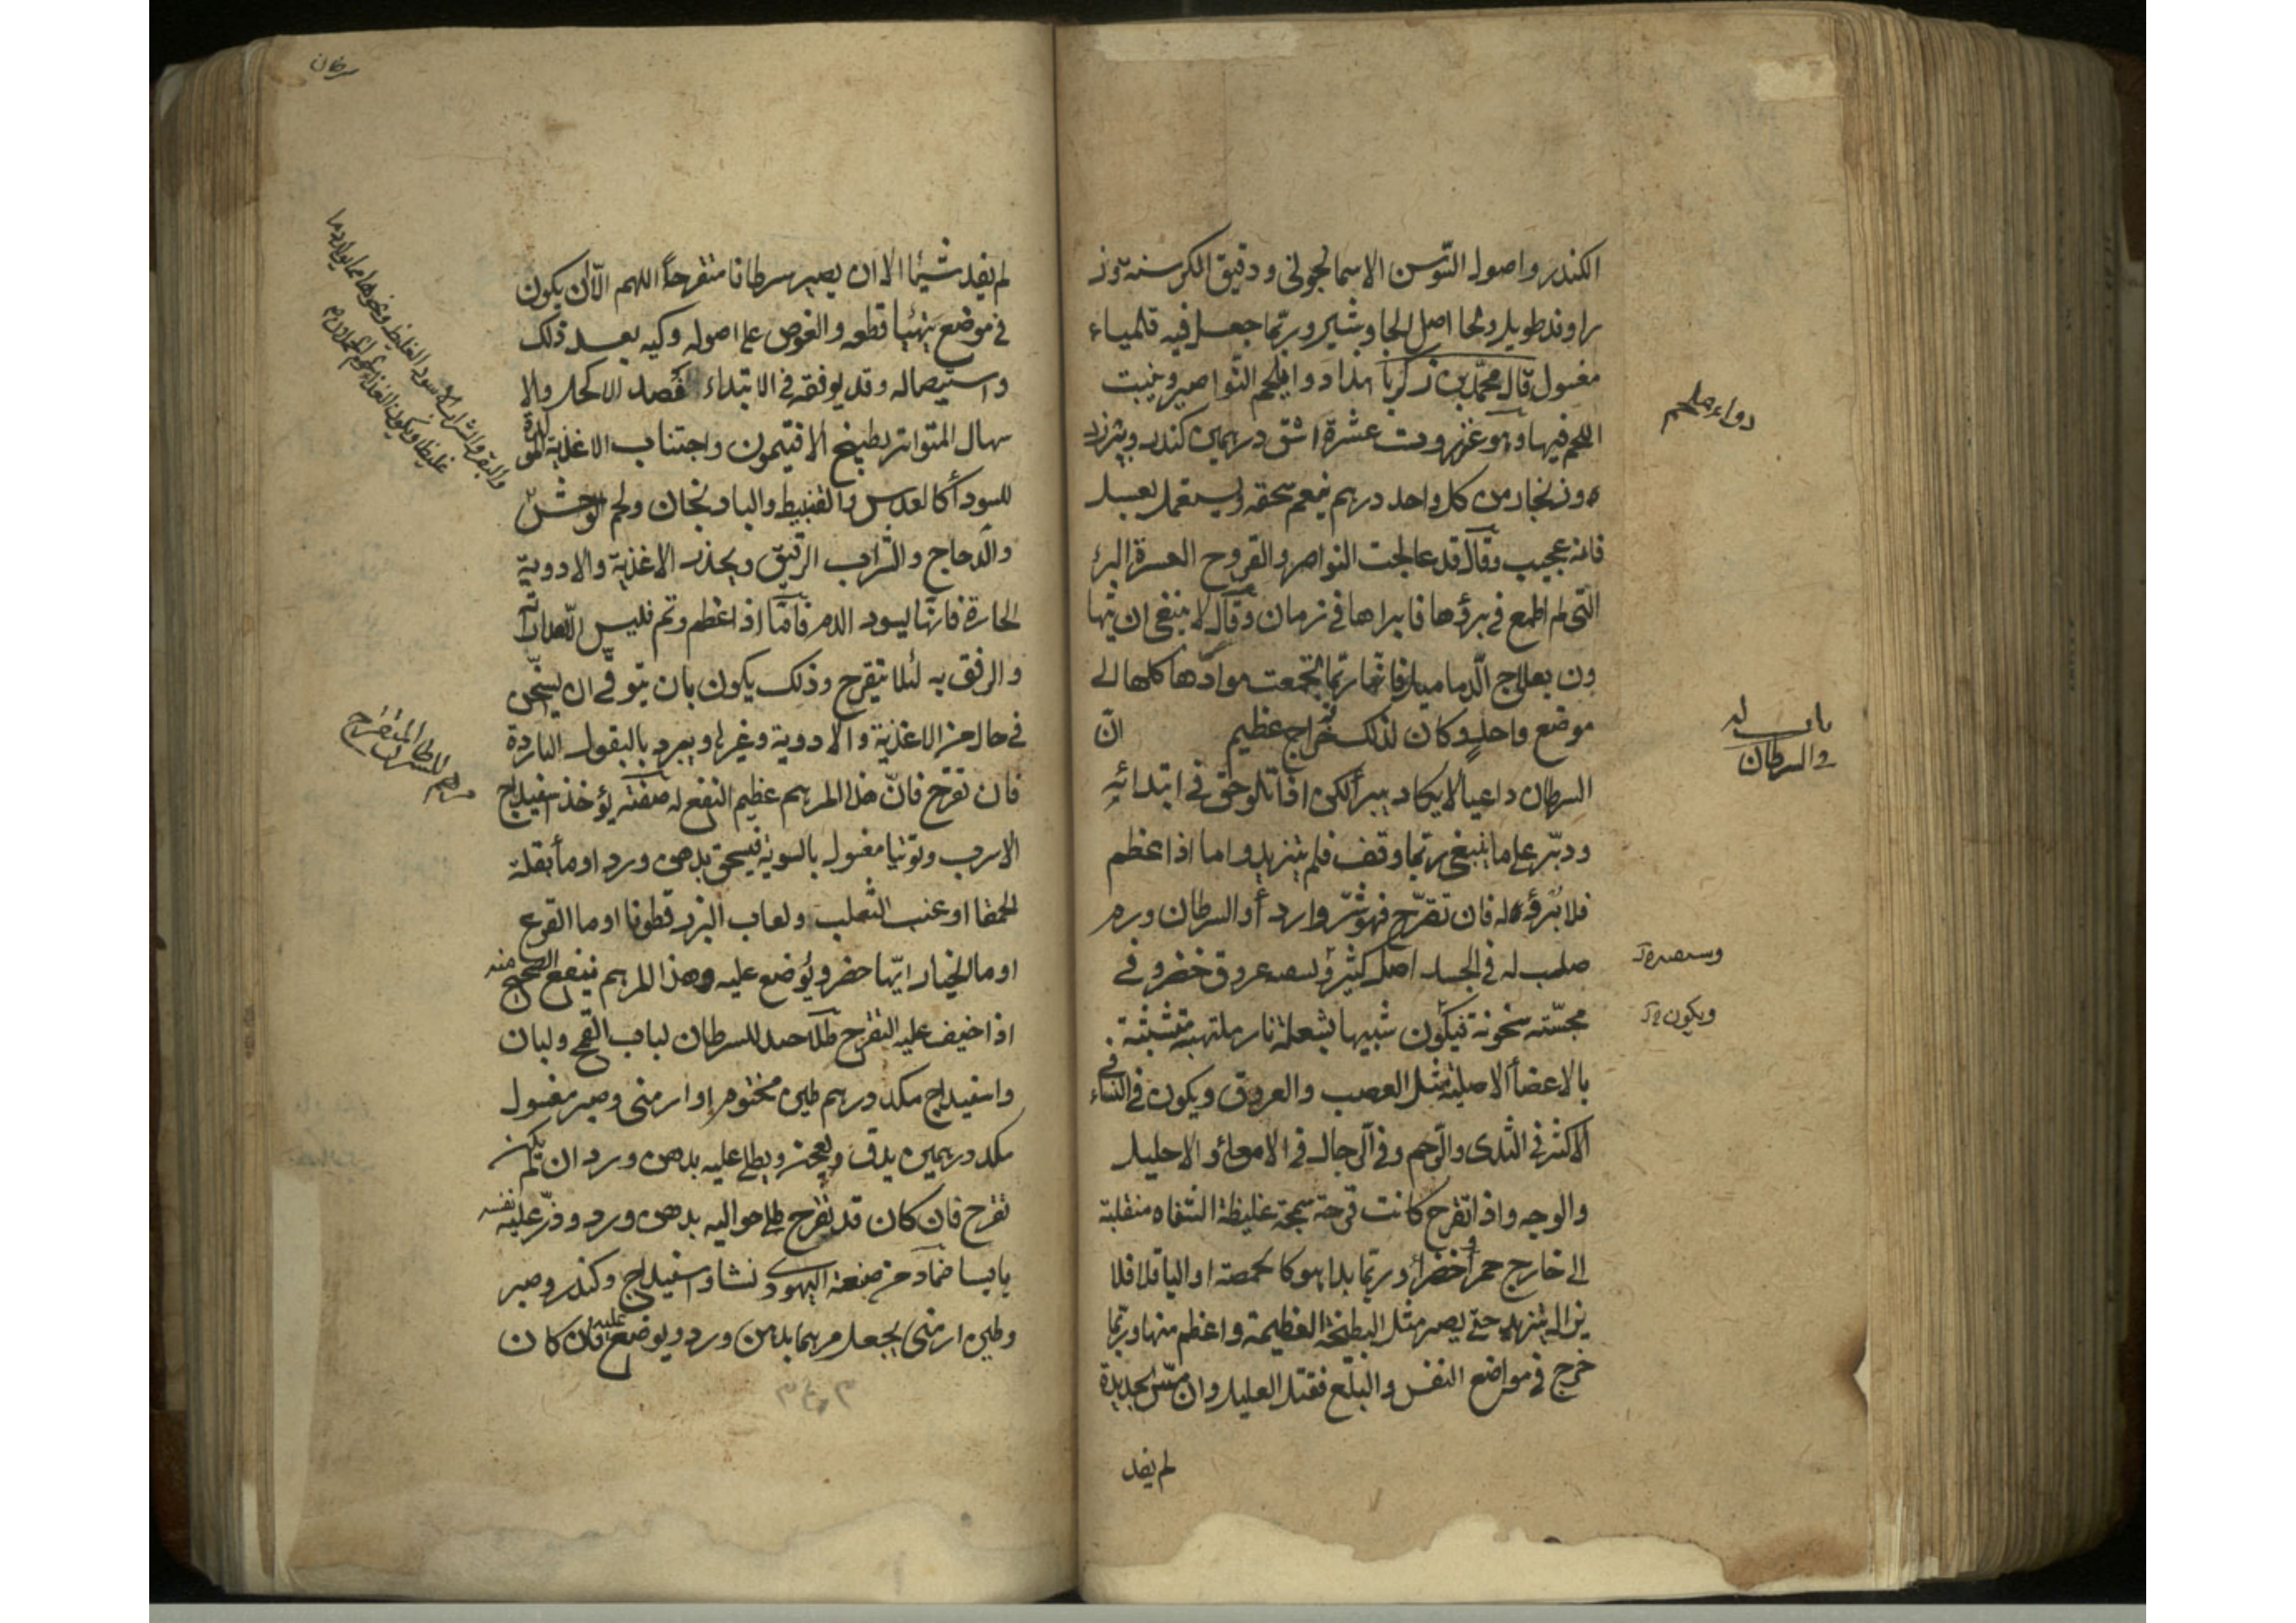 الكندر واصول السوسن الاسمانجوني ودقيق الكرسنة وز
راوند طويل ولحا اصل الجاوشير وربما جعل فيه قلمياء
مغسول قال محمد بن زكريا هذا دوا يلحم النواصير وينبت
اللحم فيها وهو عنزروت عشرة اشق درهمين كندر
وزنجار من كل واحد درهم ينعم سحقه ويستعمل بعسل
فانه عجيب وقال قد عالجت النواصر والقروح العسرة البرؤ
التي لم اطمع في برؤها فابراها في زمان وقال لا ينبغي ان يتها
ون بعلاج الدماميل فانها ربما اجتمعت موادها كلها الى
موضع واحد وكان لذلك خراج عظيم ان
السرطان داء عيا لا يكاد يبرأ لكن اذا تلوحق في ابتدائه
ودبر على ما ينبغي ربما وقف فلم يتزيد واما اذا عظم
فلا برؤ له فان تقرح فهو شر وارد أ والسرطان ورم
صلب له في الجسد اصل كثير وسعه عروق خضر وفي
مجسته سخونة فيكون شبيها بشعلة نار ملتهبة متشبثة
بالاعضأ الاصلية مثل العصب والعروق ويكون في النساء
الاكثر في الثدى والرحم وفي الرجال في الامعاء والاحليل
والوجه واذا تقرح كانت قرحة سمجة غليظة الشفاه منقلبة
الى خارج حمر أو خضر أ وربما بدا وهو كالحمصة او الباقلا فلا
يزال يتزيد حتى يصير مثل البطيخة العظيمة واعظم منها وربما
خرج في مواضع النفس والبلع فقتل العليل وان مس الحديدة
لم يفد
دواء ملحم
باب
في السرطان
ويكون
سرطان
لم يفد شيئا الا ان يصير سرطانا متقرحاً اللهم الّا ان يكون
في موضع يتهيا قطعه والغوص على اصوله وكيه بعد ذلك
واستيصاله وقد يوفقه في الابتداء فصد الاكحل والا
سهال المتواتر بطبيخ الافتيمون واجتناب الاغذية المولدة
للسودأ كالعدس والقنبيط والبادنجان ولحم الوحش
والدجاج والشراب الرقيق ويحذر الاغذية والادوية
الحارة فانها ليسود الدم فاما اذا عظم وتم فليس الا مداراته
والرفق به لئلا يتقرح وذلك يكون بان يتوقى ان يسخن
في حال من الاغذية والادوية وغيرها ويبرد بالبقول الباردة
فان تقرح فان هذا المرهم عظيم النفع له صفته يؤخذ اسفيداج
الاسرب وتوتيا مغسول بالسوية فيسحق بدهن ورد او مأ بقلة
الحمقا او عنب الثعلب ولعاب البزر قطونا او ما القرع
او ما الخيار ايها حضر ويوضع عليه وهذا المرهم ينفع الصحيح منه
اذا خيف عليه التقرح طلا جيد للسرطان لباب القمح ولبان
واسفيداج مكد درهم طين مختوم او ارمنى وصبر مغسول
مكد درهمين يدق ويعجن ويطلى عليه بدهن ورد ان لم يكن
تقرح فان كان قد تقرح طلى حواليه بدهن ورد وذر عليه نفسه
يابسا ضماد من صنعة اليهودي نشا واسفيداج وكندر وصبر
وطين ارمنى يجعل مرهما بدهن ورد ويوضع عليه فان كان
والبقر والشراب الاسود الغليظ ونحوها مما يولد دما
مرهم للسرطان المتقرح